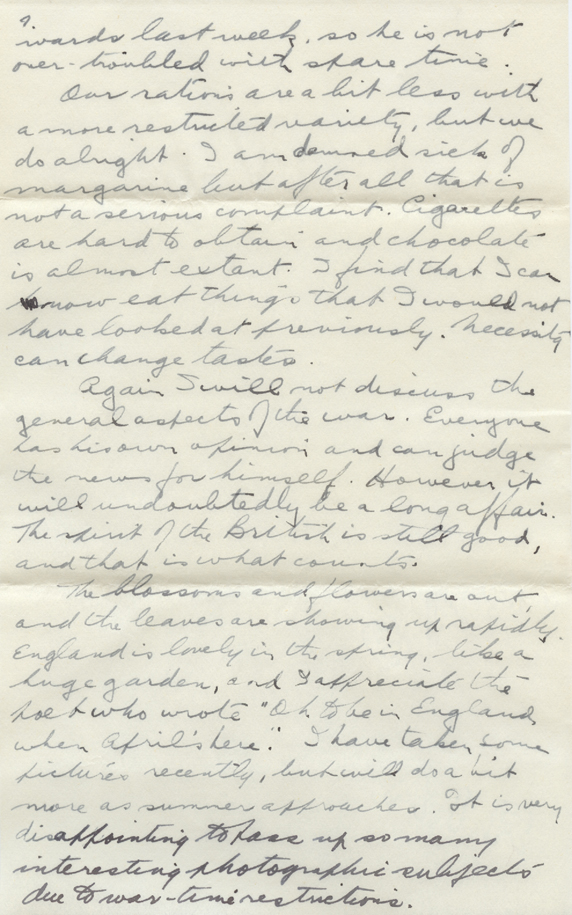 wards last week, so he is not
over-troubled with spare time.
Our rations are a bit less with
a more restricted variety, but we
do alright. I am damned sick of
margarine but after all that is
not a serious complaint. Cigarettes
are hard to obtain and chocolate
is almost extant. I find that I can
now eat things that I would not
have looked at previously. Necessity
can change tastes.
Again I will not discuss the
general aspects of the war. Everyone
has his own opinion and can judge
the news for himself. However it
will undoubtedly be a long affair.
The spirit of the British is still good,
and that is what counts.
The blossoms and flowers are out,
and the leaves are showing up rapidly.
England is lovely in the spring, like a
huge garden, and I appreciate the
poet who wrote "Oh to be in England
when April's here." I have taken some
pictures recently, but will do a bit
more as summer approaches. It is very
disappointing to pass up so many
interesting photographic subjects
due to war-time restrictions.